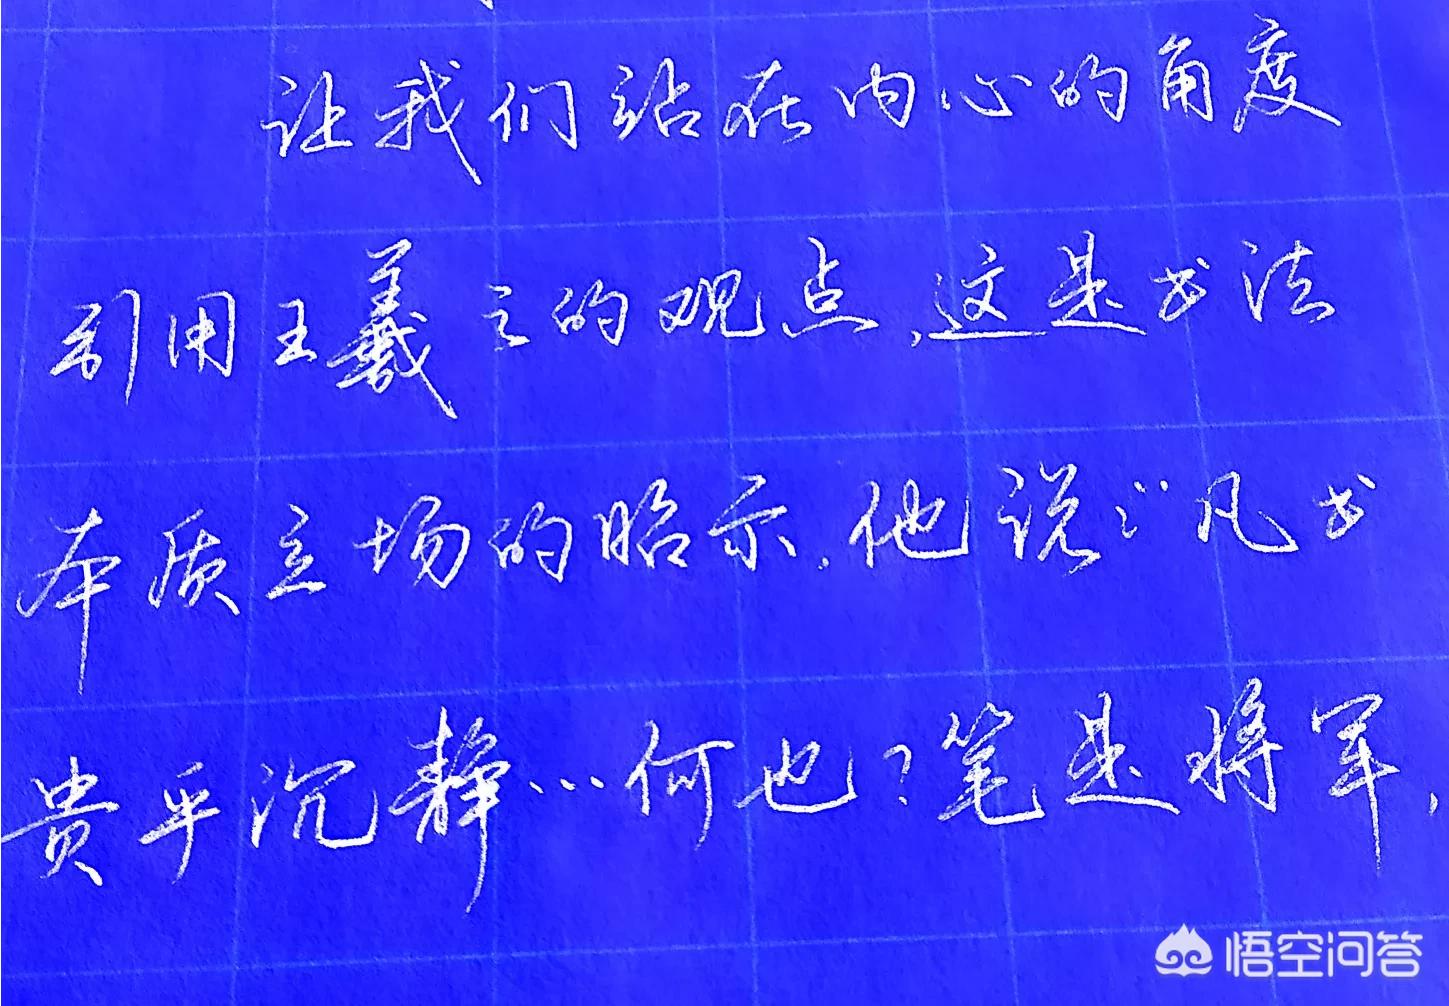 让我们站在内心的角度
引用王羲之的观点,这是书法
本质立场的昭示.他说:“凡书
贵乎沉静…何也?笔是将军,
悟空问答